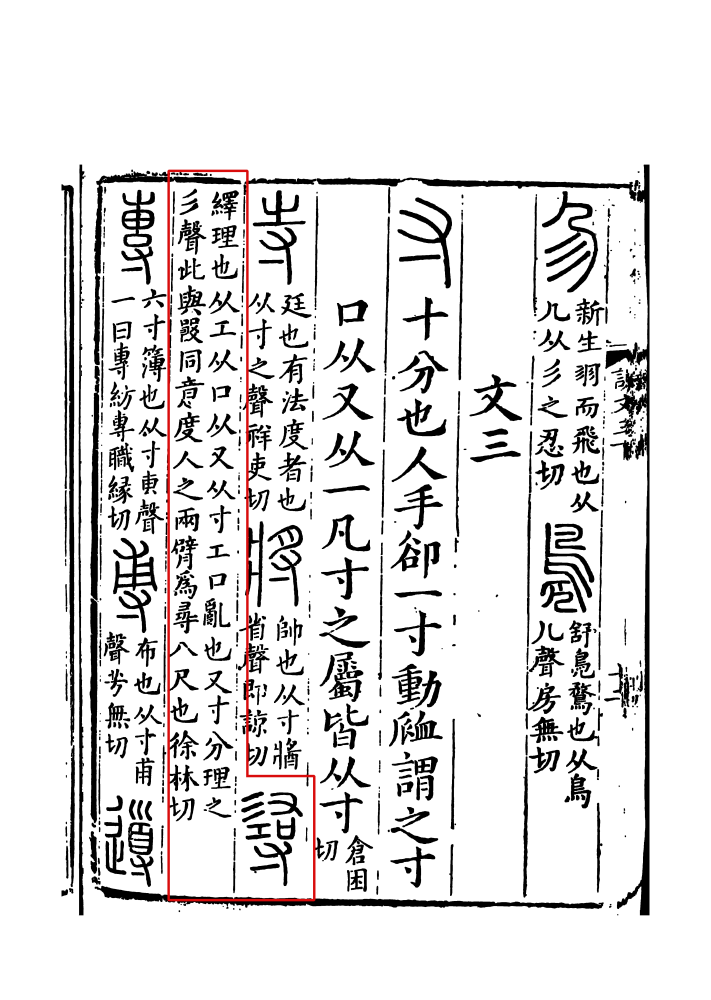 㐱
新生羽而飛也从
几从彡之忍切
鳧
舒鳧鶩也从鳥
几聲房無切
文三
寸
十分也人手卻一寸動𧖴謂之寸
口从又从一凡寸之屬皆从寸
倉困
切
寺
廷也有法度者也
从寸之聲祥吏切
將
帥也从寸
省聲即諒切
𢒫
繹理也从工从口从又从寸工口亂也又寸分理之
彡聲此與𤕦同意度人之兩臂爲尋八尺也徐林切
專
六寸簿也从寸叀聲
一曰專紡專職緣切
尃
布也从寸甫
聲芳無切
導